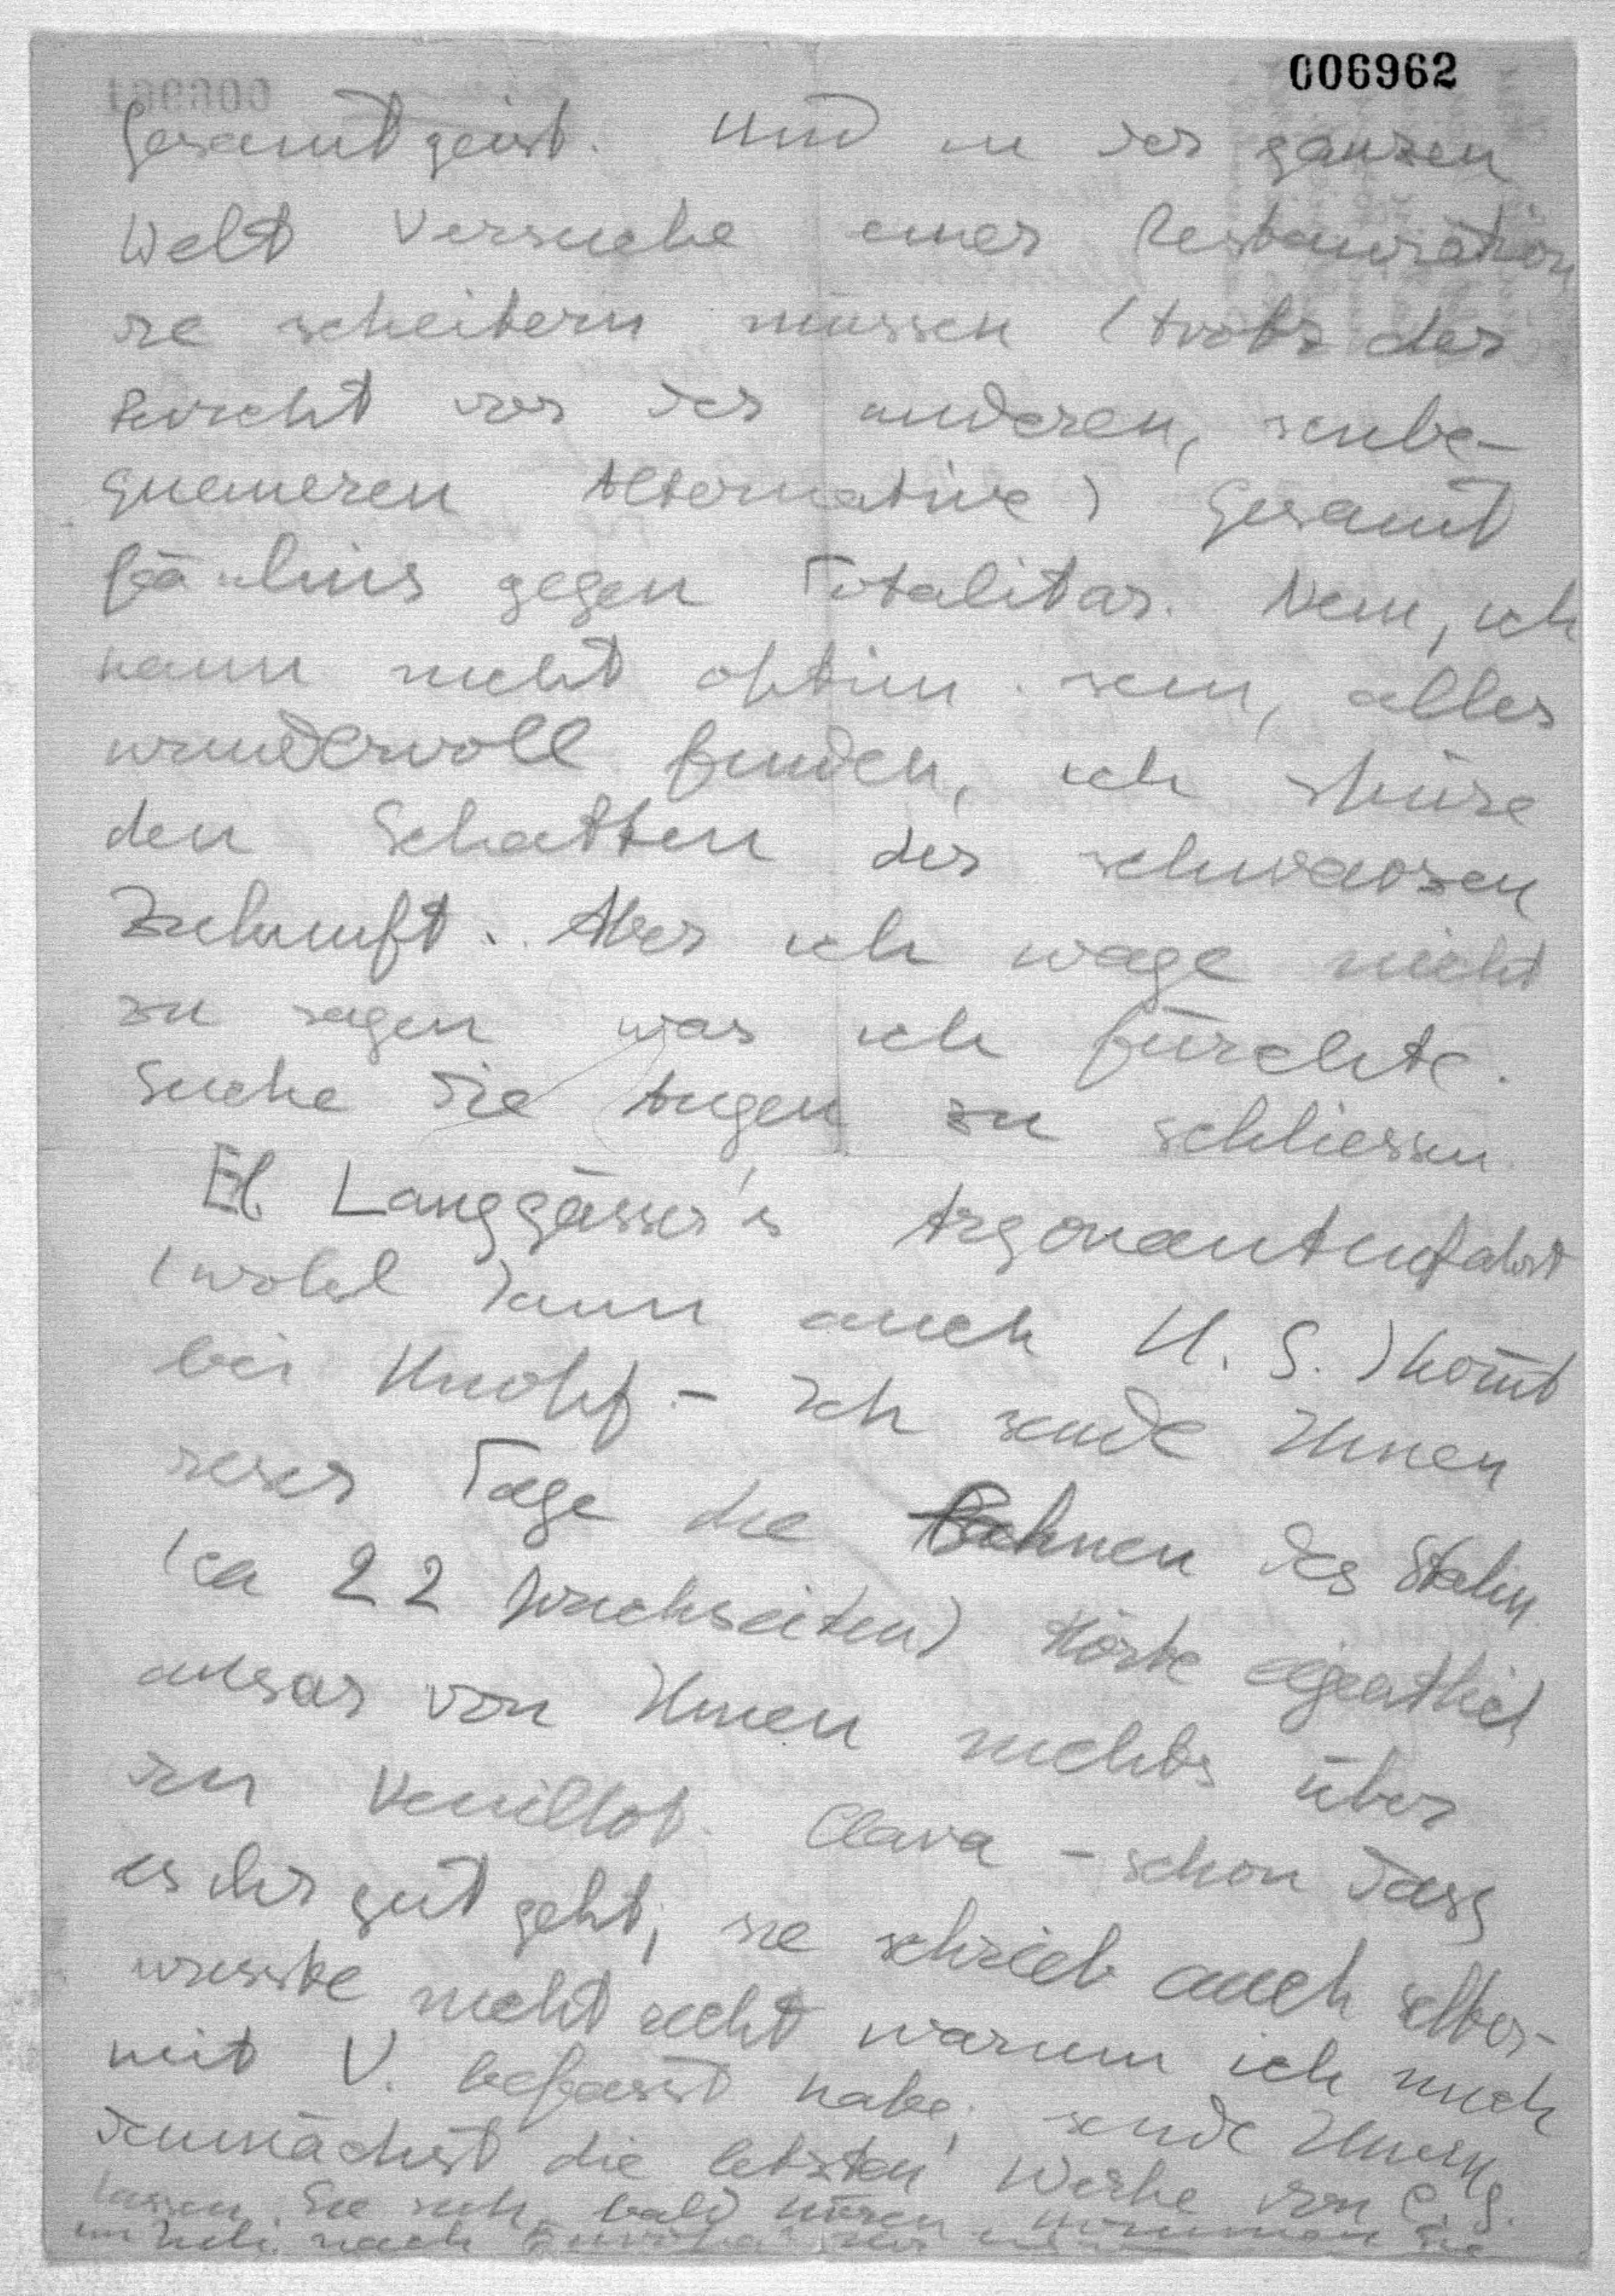 006962
Gesamtgeist. Und in der ganzen
Welt Versuche einer Restauration
die scheitern müssen (trotz der
Furcht vor der anderen, unbe-
quemeren Alternative) Gesamt
fäulnis gegen Totalitär. Nein, ich
kann nicht optim. sein, alles
wundervoll finden, ich spüre
den Schatten der schwarzen
Zukunft. Aber ich wage nicht
zu sagen was ich fürchte.
Suche die Augen zu schliessen.
El Langgässer's Argonautenfahrt
(wohl dann auch U. S.) kom̄t
bei Knopf – Ich sende Ihnen
dieser Tage die des Stalin
(ca 22 Druckseiten) Hörte eigentlich
von Ihnen nichts über
den Veuillot. Clara – schon dass
es ihr gut geht; sie schrieb auch selber –
wusste nicht recht warum ich mich
mit V. befasst habe; sende Ihnen
demnächst die letzten Werke von C. S.
lassen Sie sich bald hören kommen Sie
im Juli nach Europa